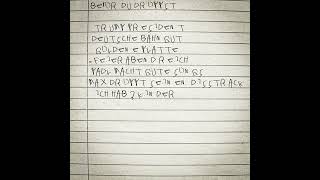 BEVOR DU DROPPST
TRUMP PRESIDENT
DEUTSCHE BAHN GUT
GOLDENE PLATTE
FEIERABEND REICH
MACHT GUTE SONGS
MAX DROPPT SEINEN DISSTRACK
ICH HAB 2 KINDER